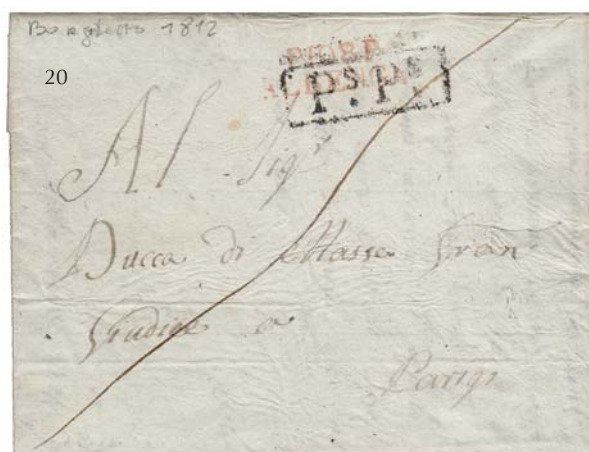 Borghetto 1812
20
P.108.P.
ALBENGA
P.S.P.S.
Al Sig.r
Ducca di Massa Gran
Giudice a
Parigi